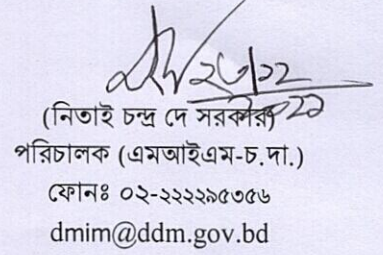 ২৬/১২
২০২২
(নিতাই চন্দ্র দে সরকার)
পরিচালক (এমআইএম-চ.দা.)
ফোনঃ ০২-২২২২৯৫৩৫৬
dmim@ddm.gov.bd